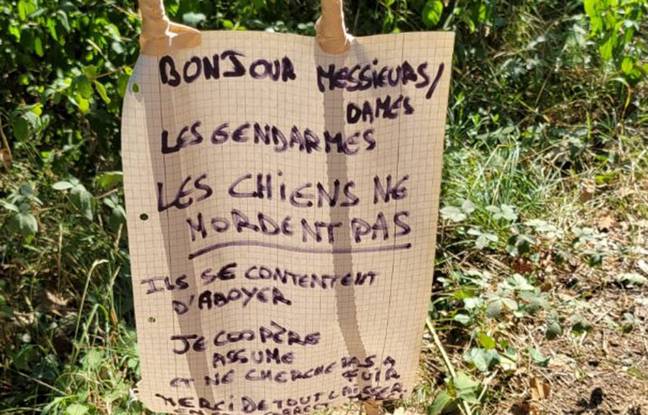 BONJOUR MESSIEURS/
DAMES
LES GENDARMES
LES CHiENS NE
MORDENT PAS
ILS SE CONTENTENT
D'ABOYER
JE COOPÈRE
ASSUME
ET NE CHERCHE PAS A
FUIR
MERCI DE TOUT LAISSER